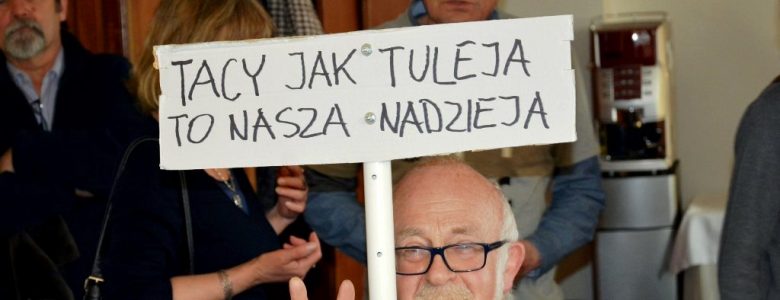 TACY JAK TULEJA
TO NASZA NADZIEJA